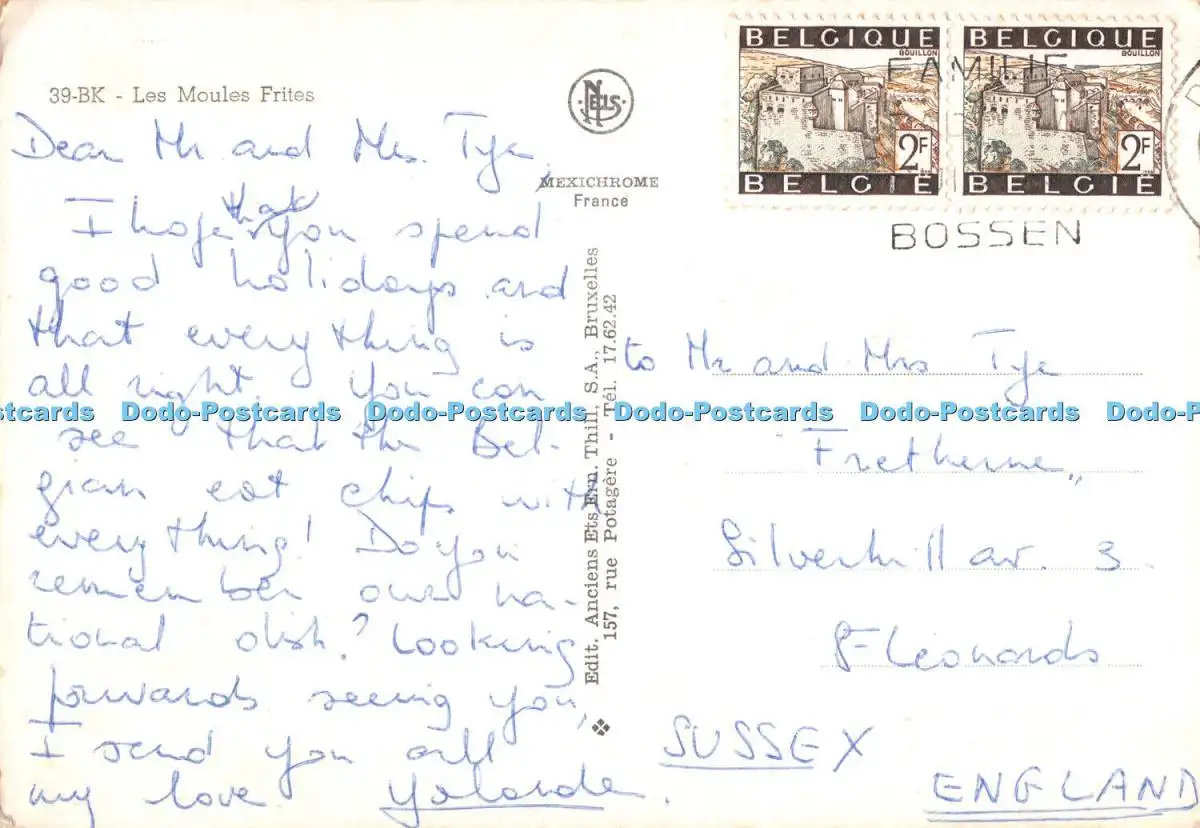 39-BK - Les Moules Frites
Dear Mr and Mrs. Tye,
that
I hope you spend
good holidays and
that everything is
all right, you can
see that the Bel-
gian eat chips with
everything! Do you
remember our na-
tional dish? Looking
forwards seeing you,
I send you all
my love Yolande.
NELS
MEXICHROME
France
Edit. Anciens Ets Ern. Thill, S.A., Bruxelles
157, rue Potagère - Tél. 17.62.42
BELGIQUE
BOUILLON
2F
BELGIË
BELGIQUE
BOUILLON
2F
BELGIË
FAMILIE-
BOSSEN
to Mr and Mrs Tye
Fretherne,
Silverhill av. 3.
St Leonards
SUSSEX
ENGLAND
Dodo-Postcards Dodo-Postcards Dodo-Postcards Dodo-Postcards